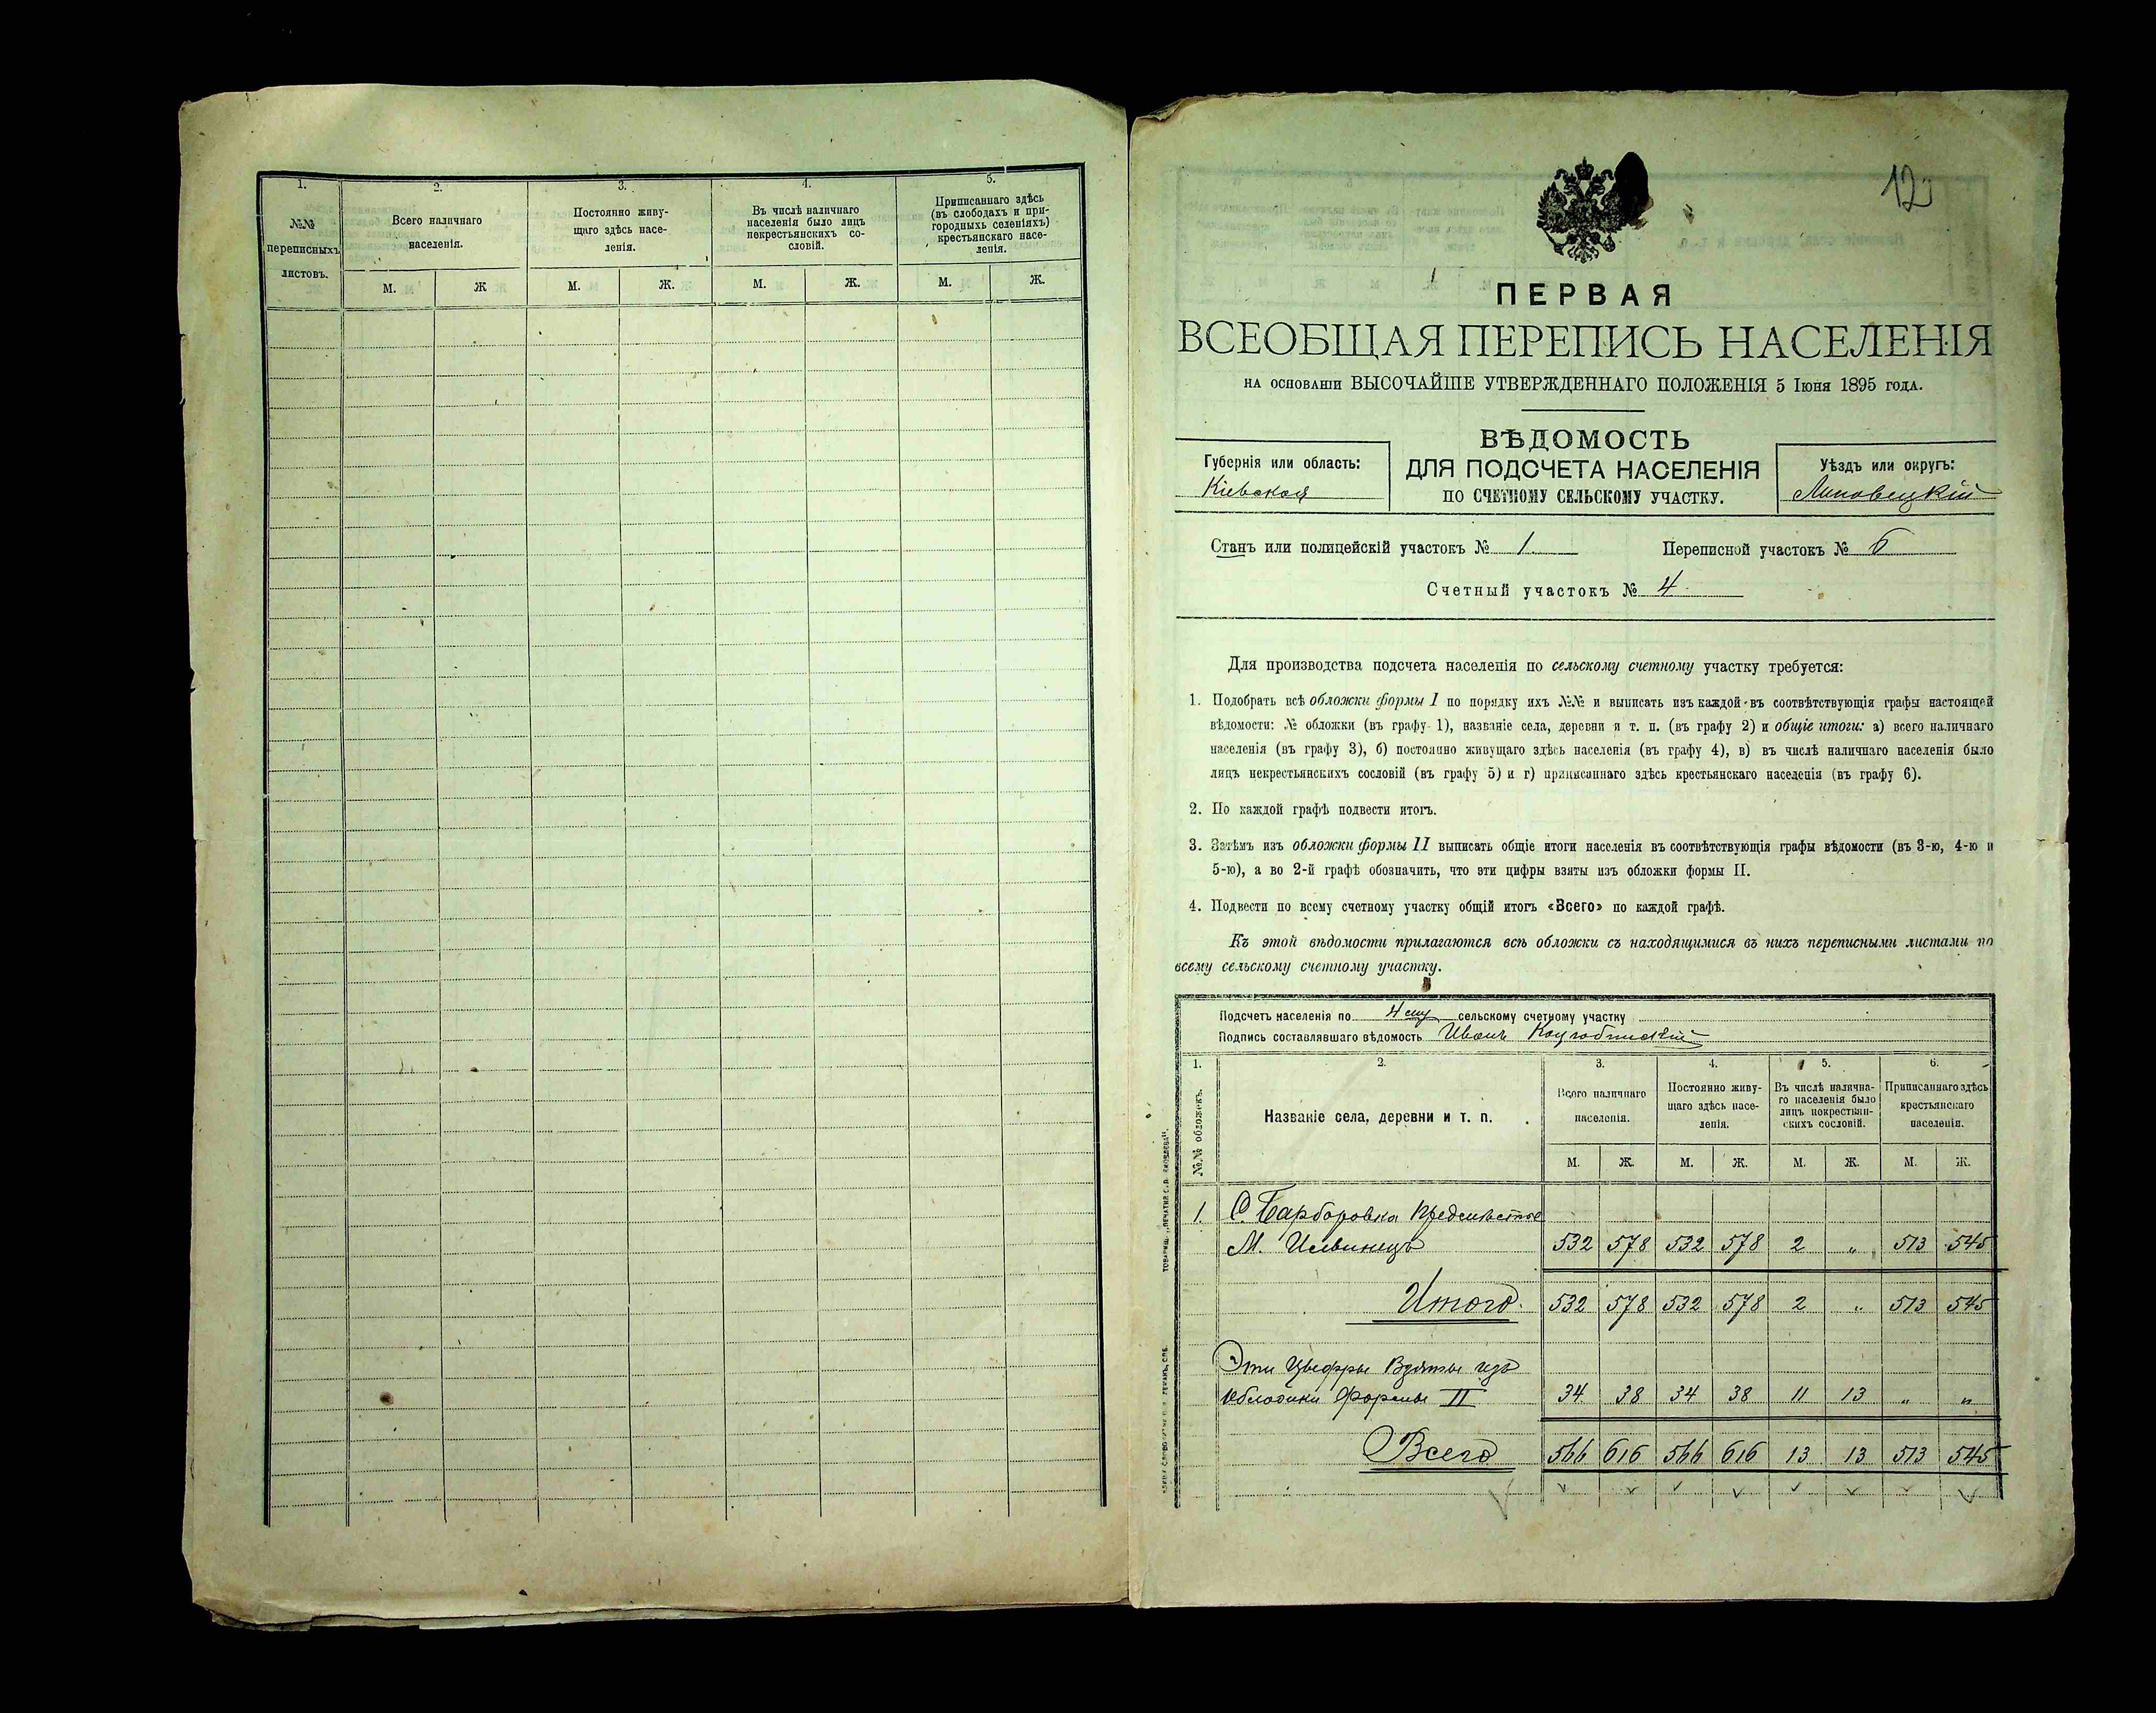 1.
2.
3.
4.
5.
№№
переписныхъ
листовъ.
Всего наличнаго
населенія.
Постоянно живу-
щаго здѣсь насе-
ленія.
Въ числѣ наличнаго
населенія было лицъ
некрестьянскихъ со-
словій.
Приписаннаго здѣсь
(въ слободахъ и при-
городныхъ селеніяхъ)
крестьянскаго насе-
ленія.
М. Ж М. Ж. М. Ж. М. Ж.
12
ПЕРВАЯ
ВСЕОБЩАЯ ПЕРЕПИСЬ НАСЕЛЕНІЯ
НА ОСНОВАНІИ ВЫСОЧАЙШЕ УТВЕРЖДЕННАГО ПОЛОЖЕНІЯ 5 Іюня 1895 ГОДА.
Губернія или область:
Кіевская
ВѢДОМОСТЬ
ДЛЯ ПОДСЧЕТА НАСЕЛЕНІЯ
ПО СЧЕТНОМУ СЕЛЬСКОМУ УЧАСТКУ.
Уѣздъ или округъ:
Липовецкій
Станъ или полицейскій участокъ № 1 Переписной участокъ № 6
Счетный участокъ № 4
Для производства подсчета населенія по сельскому счетному участку требуется:
1. Подобрать всѣ обложки формы I по порядку ихъ №№ и выписать изъ каждой въ соотвѣтствующія графы настоящей
вѣдомости: № обложки (въ графу 1), названіе села, деревни и т. п. (въ графу 2) и общіе итоги: а) всего наличнаго
населенія (въ графу 3), б) постоянно живущаго здѣсь населенія (въ графу 4), в) въ числѣ наличнаго населенія было
лицъ некрестьянскихъ сословій (въ графу 5) и г) приписаннаго здѣсь крестьянскаго населенія (въ графу 6).
2. По каждой графѣ подвести итогъ.
3. Затѣмъ изъ обложки формы II выписать общіе итоги населенія въ соотвѣтствующія графы вѣдомости (въ 3-ю, 4-ю и
5-ю), а во 2-й графѣ обозначить, что эти цифры взяты изъ обложки формы II.
4. Подвести по всему счетному участку общій итогъ «Всего» по каждой графѣ.
Къ этой вѣдомости прилагаются всѣ обложки съ находящимися въ нихъ переписными листами по
всему сельскому счетному участку.
Подсчетъ населенія по 4 му сельскому счетному участку
Подпись составлявшаго вѣдомость Иванъ Коцюбинскій
1. 2. 3. 4. 5. 6.
№№ обложекъ.
Названіе села, деревни и т. п.
Всего наличнаго
населенія.
Постоянно живу-
щаго здѣсь насе-
ленія.
Въ числѣ налична-
го населенія было
лицъ некрестьян-
скихъ сословій.
Приписаннаго здѣсь
крестьянскаго
населенія.
М. Ж. М. Ж. М. Ж. М. Ж.
1. С. Барборовка предмѣстье
М. Ильинецъ 532 578 532 578 2 „ 513 545
Итого. 532 578 532 578 2 „ 513 545
Эти Цыфры Взяты изъ
Обложки Формы II 34 38 34 38 11 13 „ „
Всего 566 616 566 616 13 13 513 545